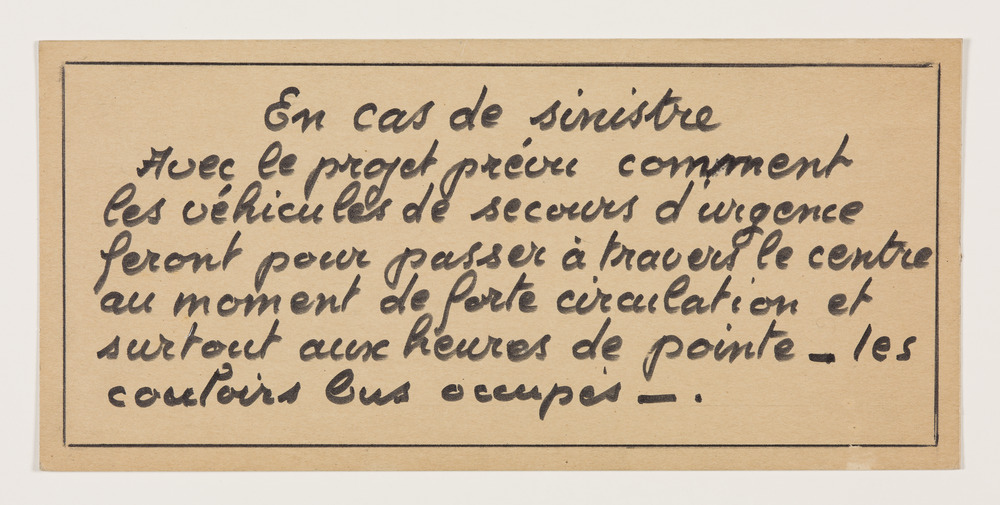 En cas de sinistre
Avec le projet prévu comment
les véhicules de secours d'urgence
feront pour passer à travers le centre
au moment de forte circulation et
surtout aux heures de pointe _ les
couloirs bus occupés _ .